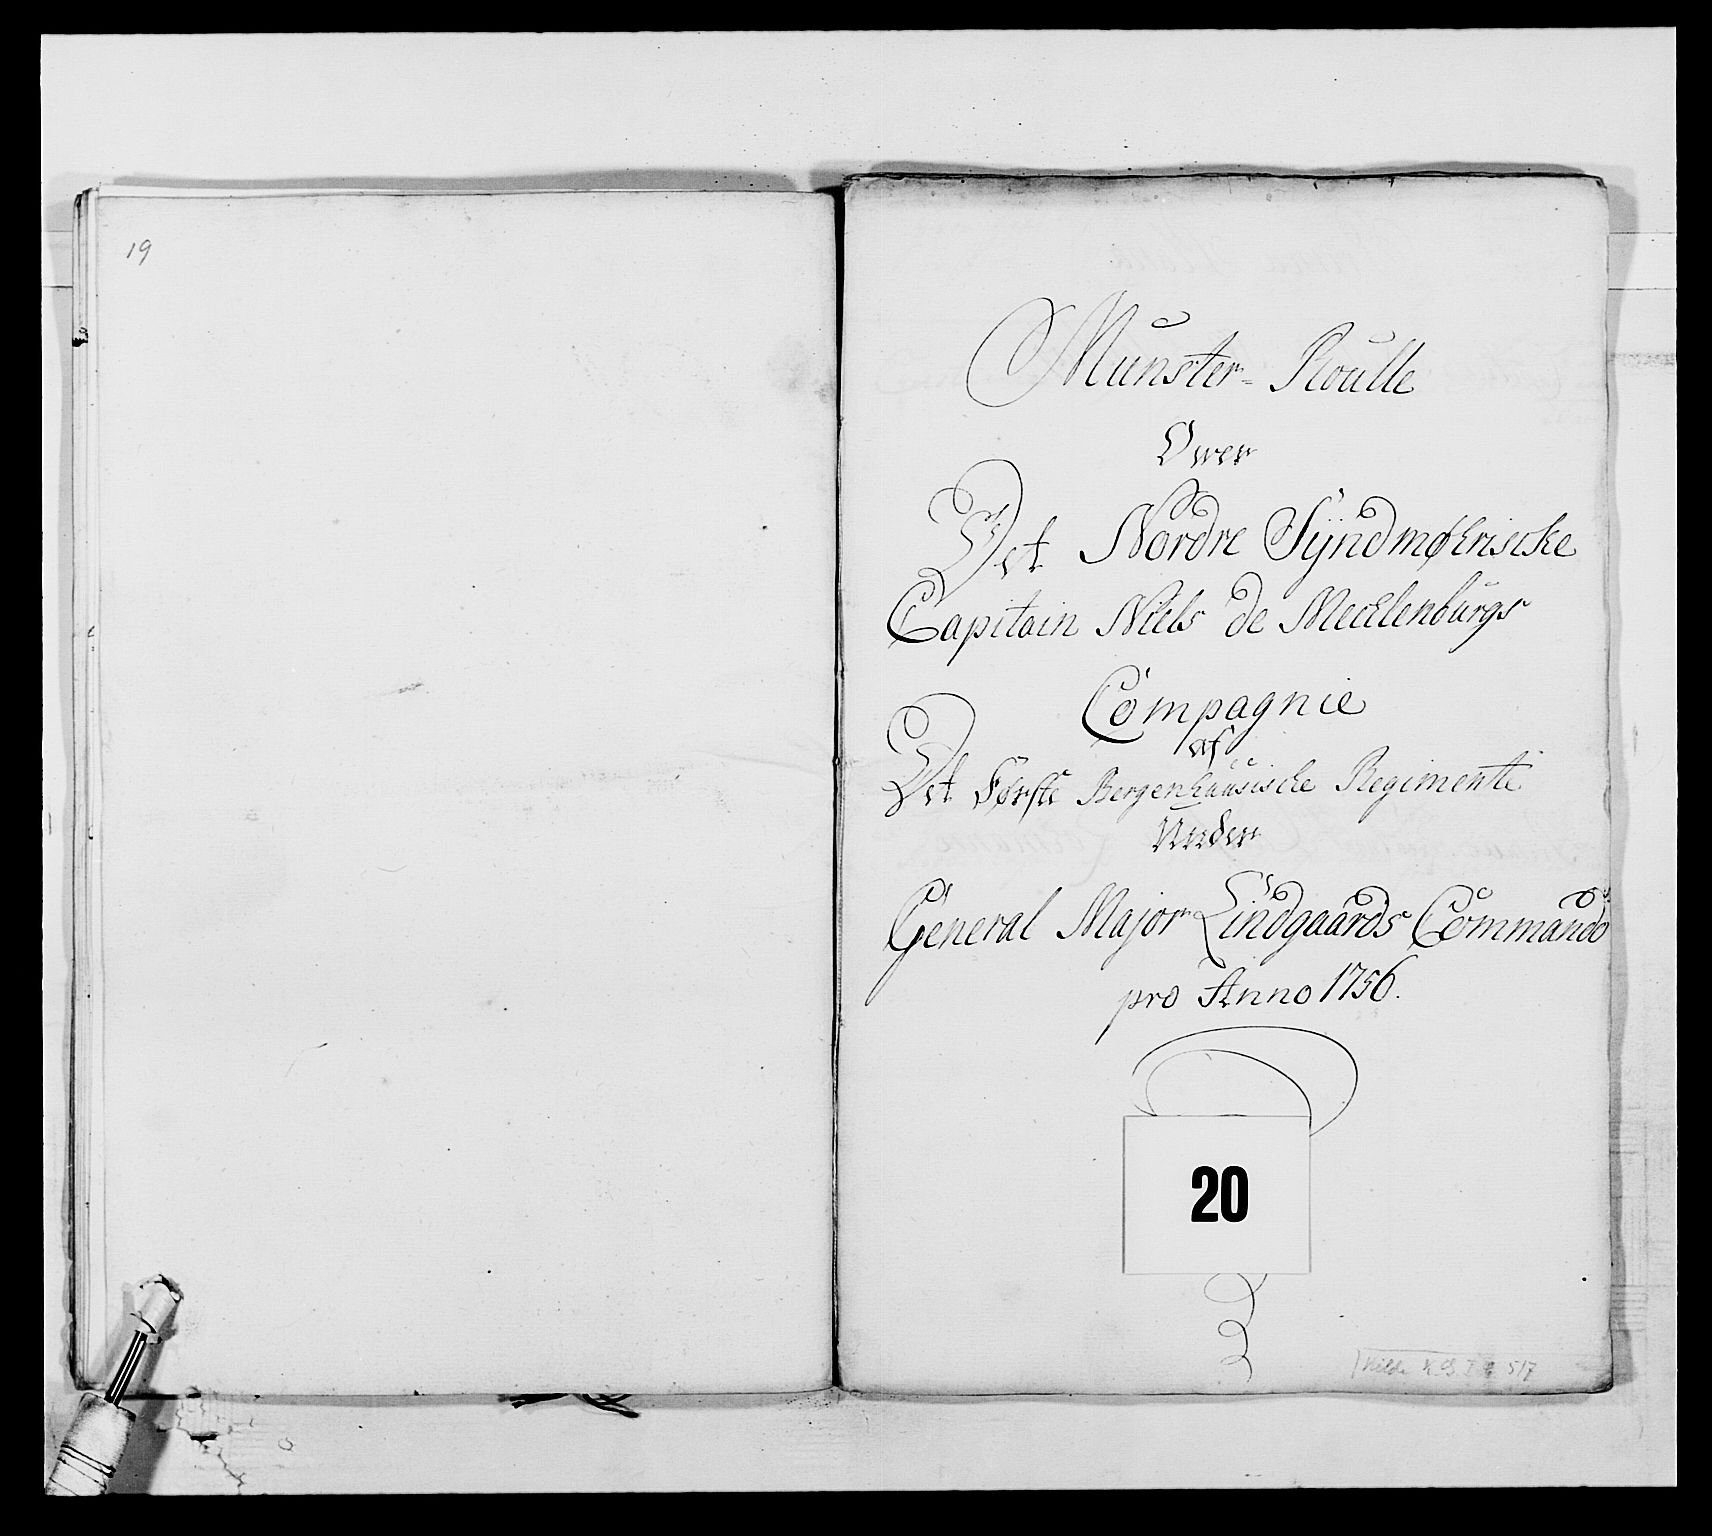 19
Munster=Roulle
Over
Det Nordre Syndmøhriscke
Capitain Niels de Mecklenburgs
Compagnie
af
Det Første Bergenhuusiske Regimente
Under
General Major Lindgaards Commando
pro Anno 1756.
20
517